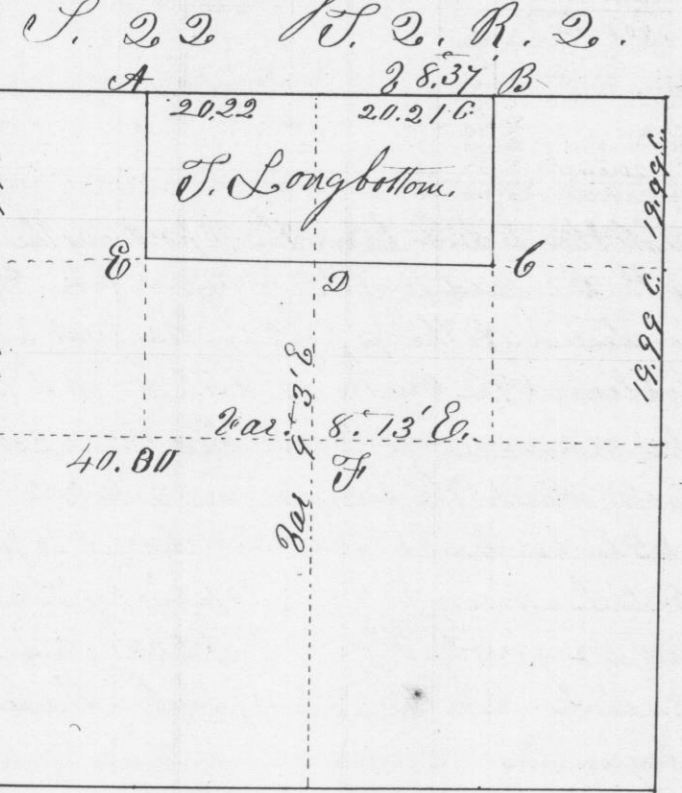 S. 22 T. 2. R. 2.
A 8.37' B
20.22 20.21 C.
T. Longbottom.
19.99 C.
E D C
19.99 C.
Var. 8. 13' E.
40.00 F
Var 9 - 3' E